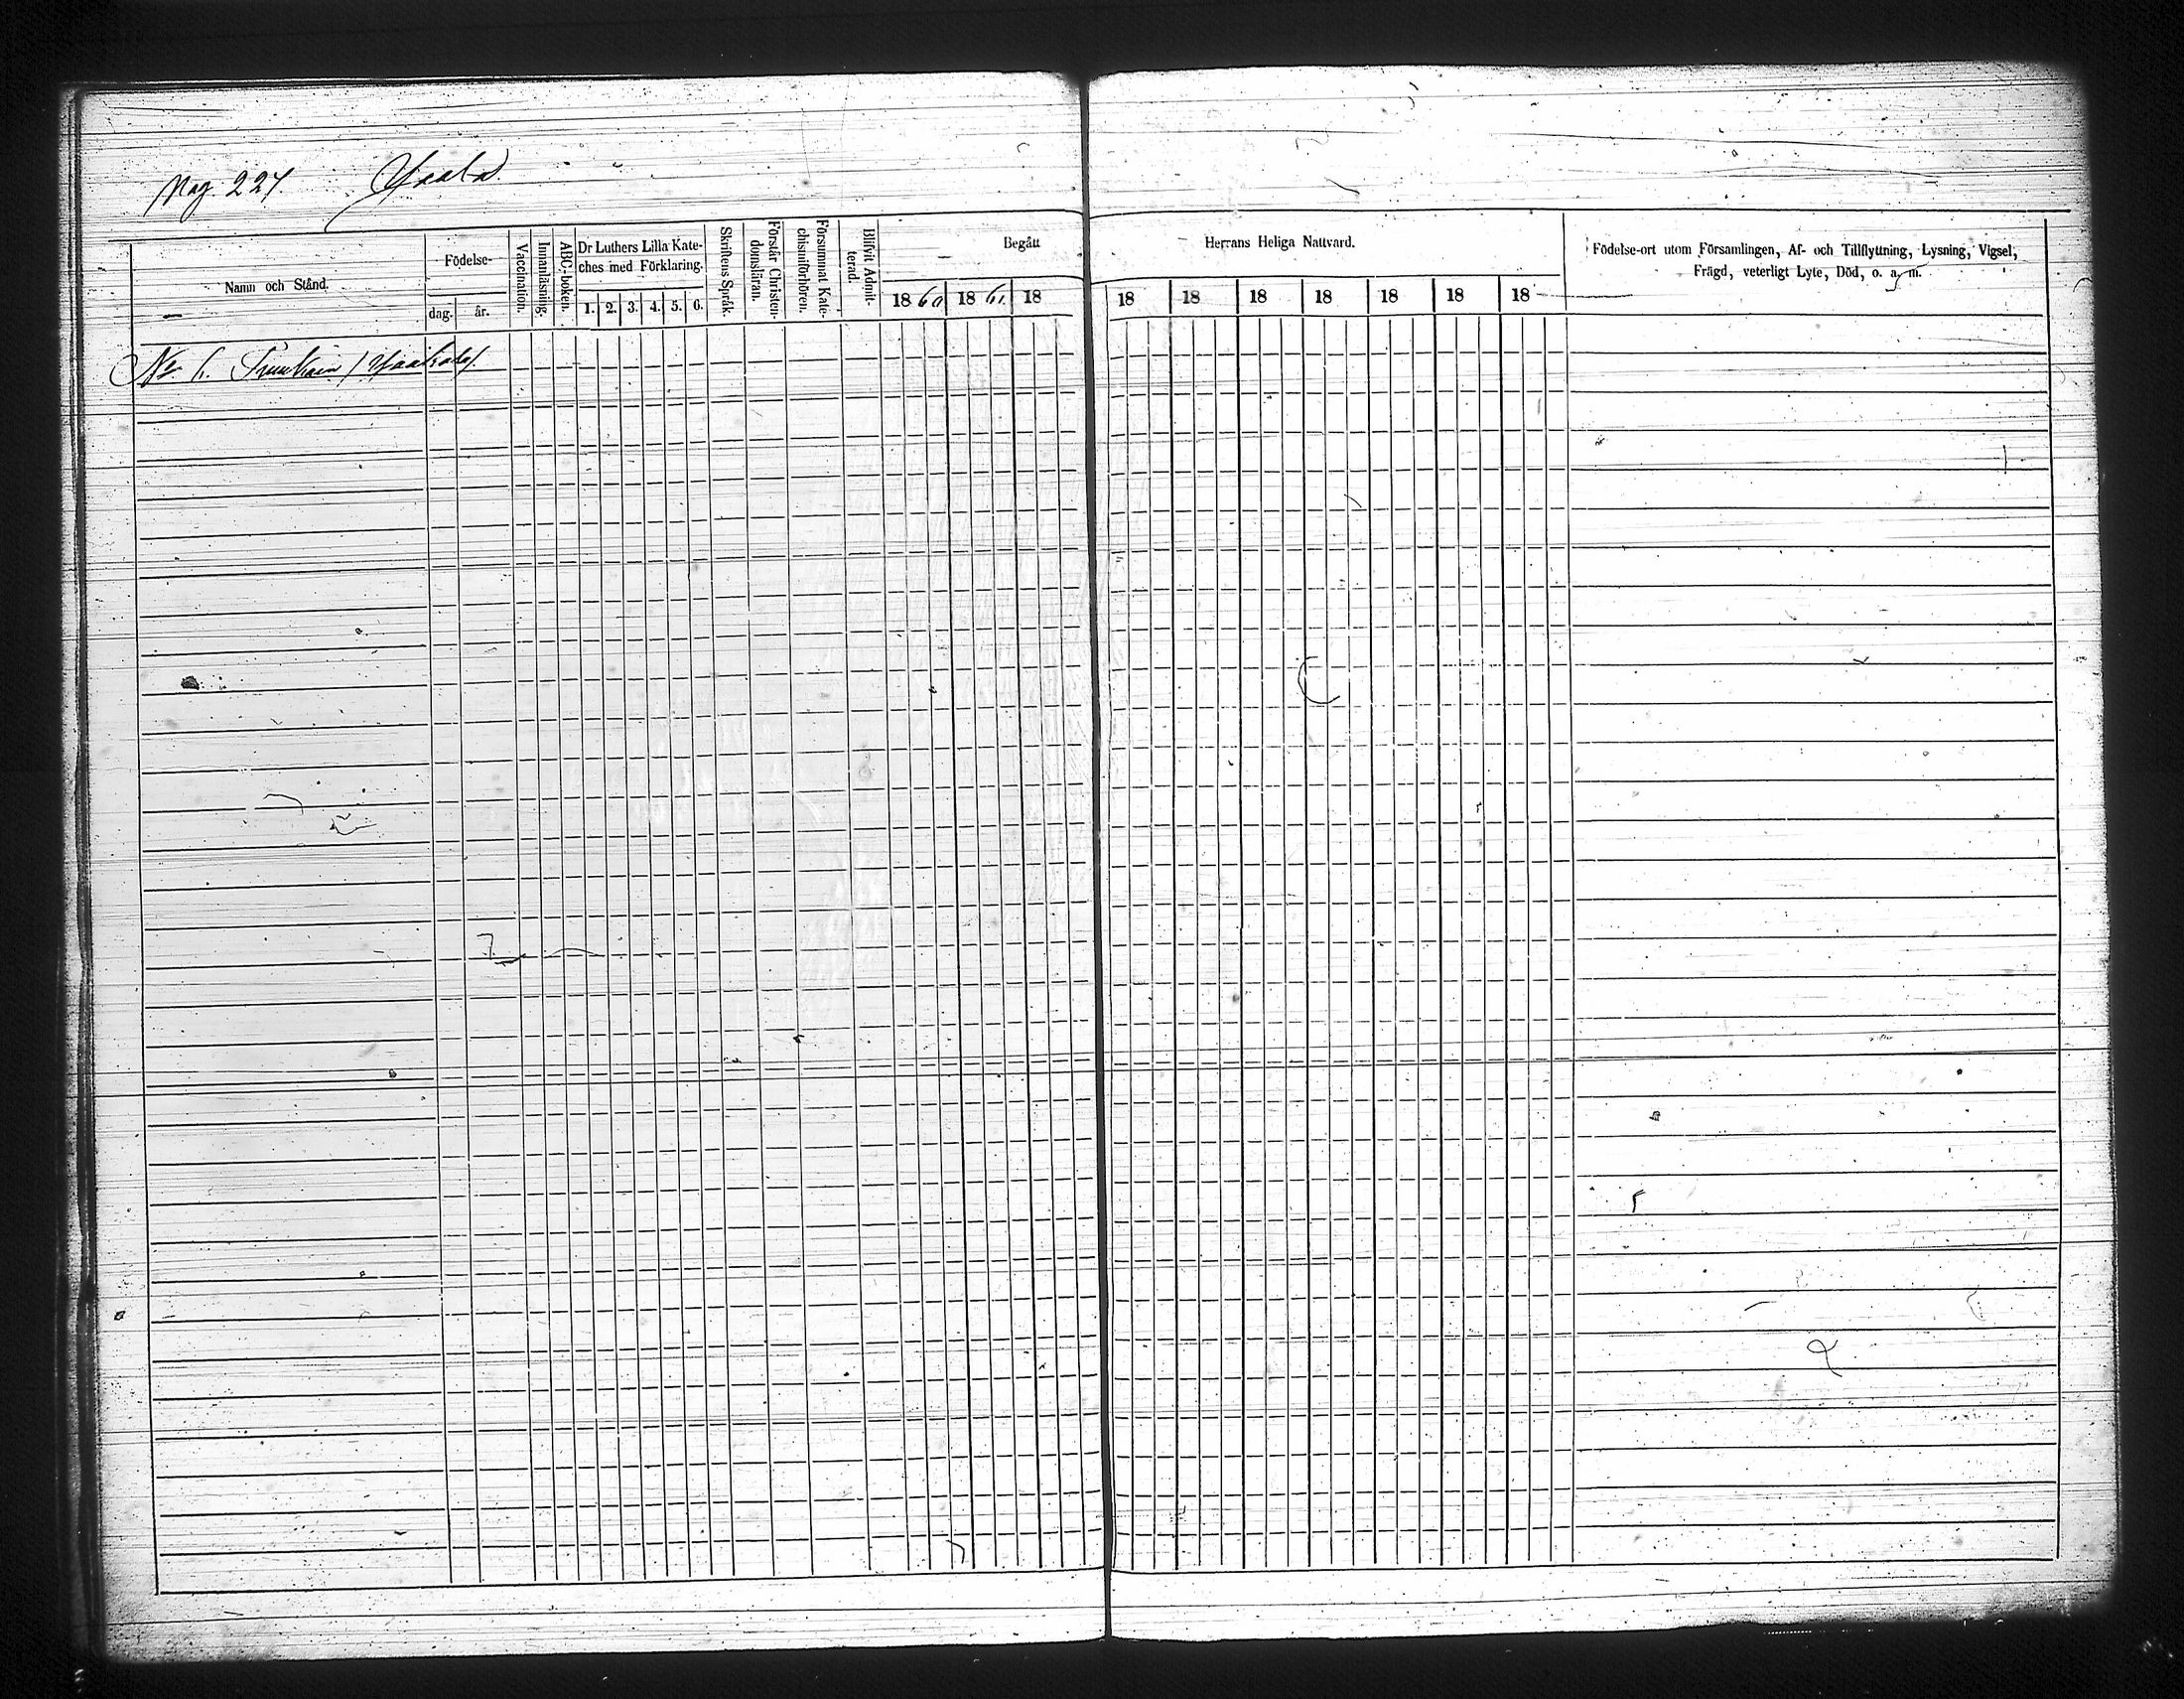 Pag. 227.
Namn och Stånd.
Födelse-
dag.
år.
Vaccination.
Innanläsning.
ABC-boken.
Dr Luthers Lilla Kate-
ches med Förklaring.
1. 2. 3. 4. 5. 6.
Skriftens Språk.
Förstår Christen-
domsläran.
Försummat Kate-
chismiförhören.
Blifvit Admit-
terad.
Begått
1860 1861. 18
Herrans Heliga Nattvard.
18 18 18 18 18 18 18
Födelse-ort utom Församlingen, Af- och Tillflyttning, Lysning, Vigsel,
Frägd, veterligt Lyte, Död, o. a. m.